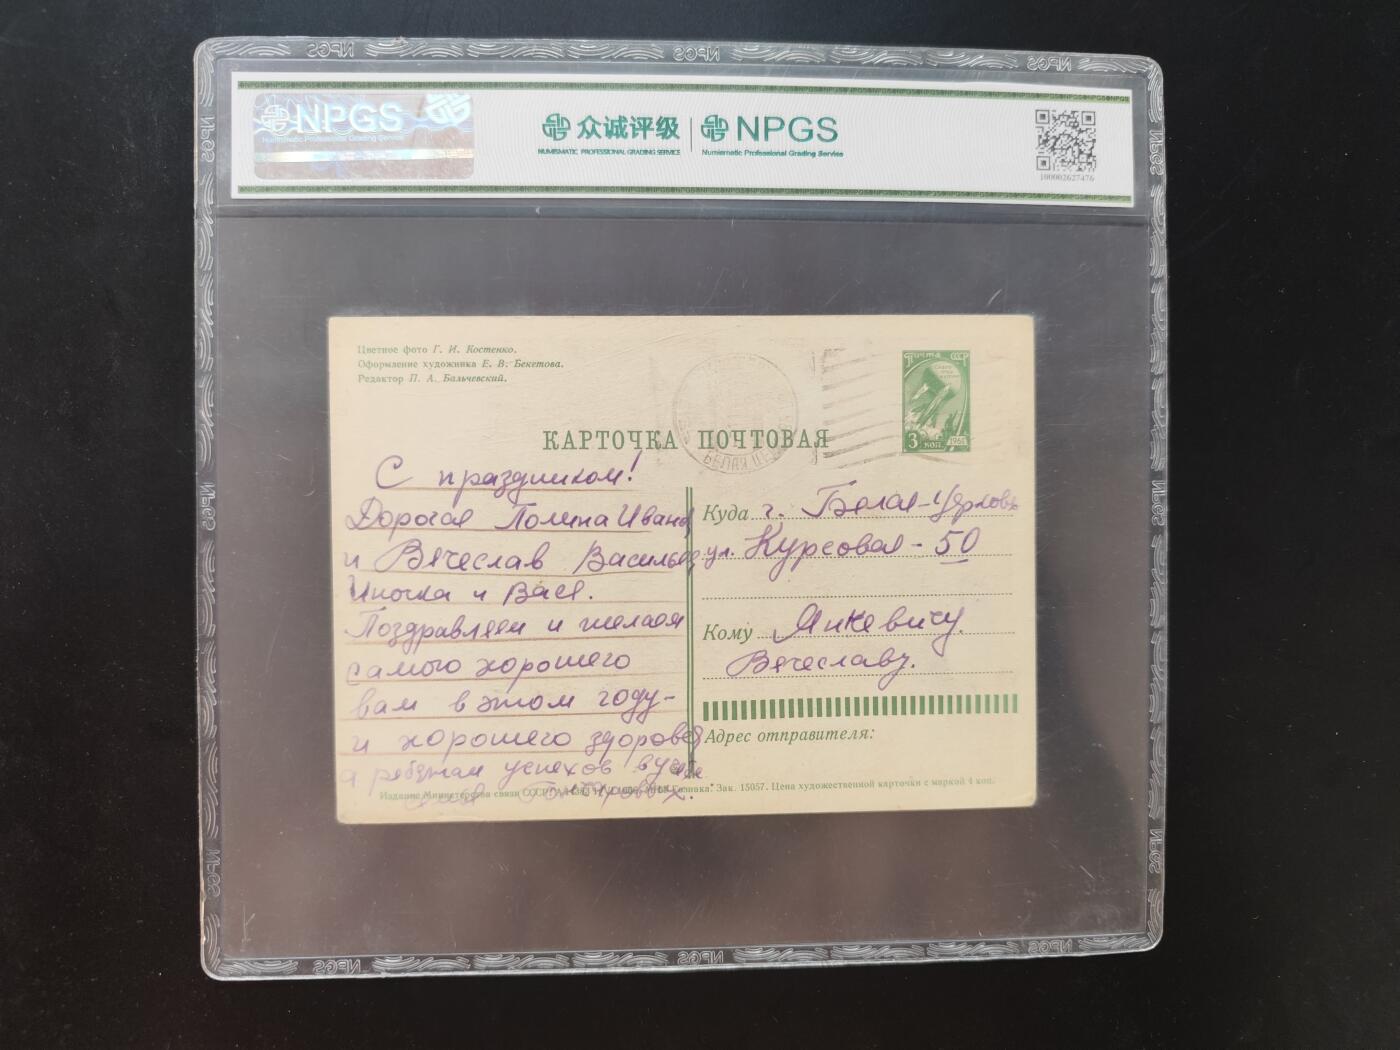 NPGS
Numismatic Professional Grading Service
众诚评级
NUMISMATIC PROFESSIONAL GRADING SERVICE
NPGS
Numismatic Professional Grading Service
100002627476
Цветное фото Г. И. Костенко.
Оформление художника Е. В. Бекетова.
Редактор П. А. Бальчевский.
ПОЧТА СССР
3 КОП.
1961
БЕЛАЯ
КАРТОЧКА ПОЧТОВАЯ
С праздником!
Дорогая Полина Иван
и Вячеслав Василье
Иночка и Вася.
Поздравляем и желаем
самого хорошего
вам в этом году-
и хорошего здоровья
а ребятам успехов
Куда г. Белая-Церковь
ул. Курсовая-50
Кому Янкевичу
Вячеславу.
Адрес отправителя:
Издание Министерства связи СССР Зак. 15057. Цена художественной карточки с маркой 4 коп.